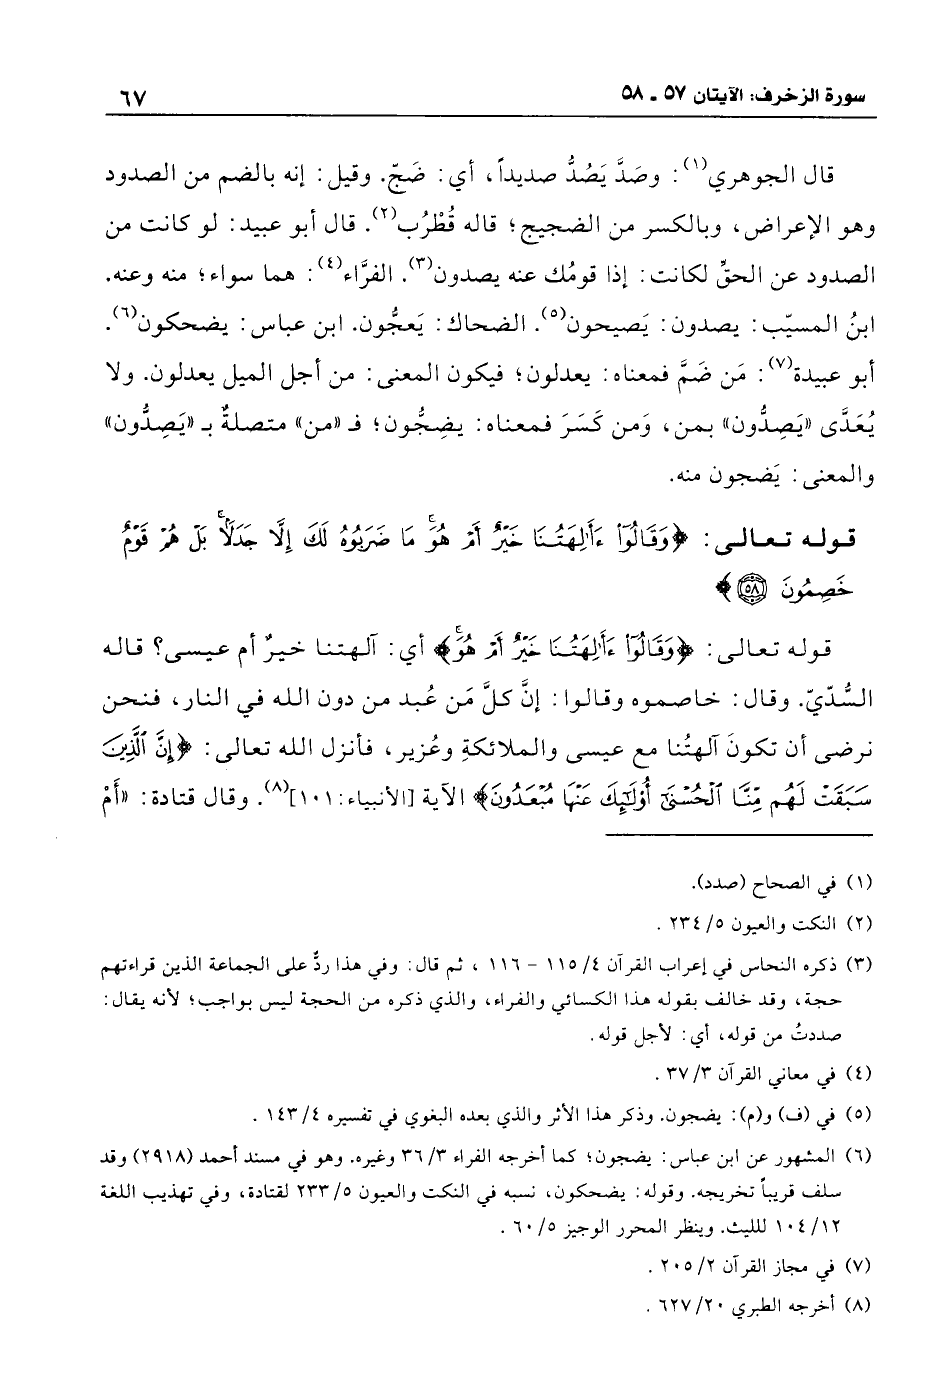 سورة الزخرف: الآيتان ٥٧ ـ ٥٨
٦٧
قال الجوهري(١): وصَدَّ يَصُدُّ صديداً، أي: ضَجّ. وقيل: إنه بالضم من الصدود
وهو الإعراض، وبالكسر من الضجيج؛ قاله قُطْرُب(٢). قال أبو عبيد: لو كانت من
الصدود عن الحقِّ لكانت: إذا قومُك عنه يصدون(٣). الفرَّاء(٤): هما سواء؛ منه وعنه.
ابنُ المسيّب: يصدون: يَصيحون(٥). الضحاك: يَعجُّون. ابن عباس: يضحكون(٦).
أبو عبيدة(٧): مَن ضَمَّ فمعناه: يعدلون؛ فيكون المعنى: من أجل الميل يعدلون. ولا
يُعَدَّى «يَصِدُّون» بمن، وَمن كَسَرَ فمعناه: يضِجُّون؛ فـ «من» متصلةٌ بـ «يَصِدُّون»
والمعنى: يَضجون منه.
قوله تعالى: ﴿وَقَالُوٓاْ ءَأَٰلِهَتُنَا خَيْرٌ أَمْ هُوَۚ مَا ضَرَبُوهُ لَكَ إِلَّا جَدَلَۢاۚ بَلْ هُمْ قَوْمٌ
خَصِمُونَ ۝٥٨﴾
قوله تعالى: ﴿وَقَالُوٓاْ ءَأَٰلِهَتُنَا خَيْرٌ أَمْ هُوَۚ﴾ أي: آلهتنا خيرٌ أم عيسى؟ قاله
السُّدّيّ. وقال: خاصموه وقالوا: إنَّ كلَّ مَن عُبد من دون الله في النار، فنحن
نرضى أن تكونَ آلهتُنا مع عيسى والملائكةِ وعُزير، فأنزل الله تعالى: ﴿إِنَّ ٱلَّذِينَ
سَبَقَتْ لَهُم مِّنَّا ٱلْحُسْنَىٰٓ أُوْلَٰٓئِكَ عَنْهَا مُبْعَدُونَ﴾ الآية [الأنبياء:١٠١](٨). وقال قتادة: «أَمْ
(١) في الصحاح (صدد).
(٢) النكت والعيون ٥/ ٢٣٤ .
(٣) ذكره النحاس في إعراب القرآن ٤/ ١١٥ - ١١٦ ، ثم قال: وفي هذا ردٌّ على الجماعة الذين قراءتهم
حجة، وقد خالف بقوله هذا الكسائي والفراء، والذي ذكره من الحجة ليس بواجب؛ لأنه يقال:
صددتُ من قوله، أي: لأجل قوله.
(٤) في معاني القرآن ٣/ ٣٧ .
(٥) في (ف) و(م): يضجون. وذكر هذا الأثر والذي بعده البغوي في تفسيره ٤/ ١٤٣ .
(٦) المشهور عن ابن عباس: يضجون؛ كما أخرجه الفراء ٣/ ٣٦ وغيره. وهو في مسند أحمد (٢٩١٨) وقد
سلف قريباً تخريجه. وقوله: يضحكون، نسبه في النكت والعيون ٥/ ٢٣٣ لقتادة، وفي تهذيب اللغة
١٢/ ١٠٤ لليث. وينظر المحرر الوجيز ٥/ ٦٠ .
(٧) في مجاز القرآن ٢/ ٢٠٥ .
(٨) أخرجه الطبري ٢٠/ ٦٢٧ .